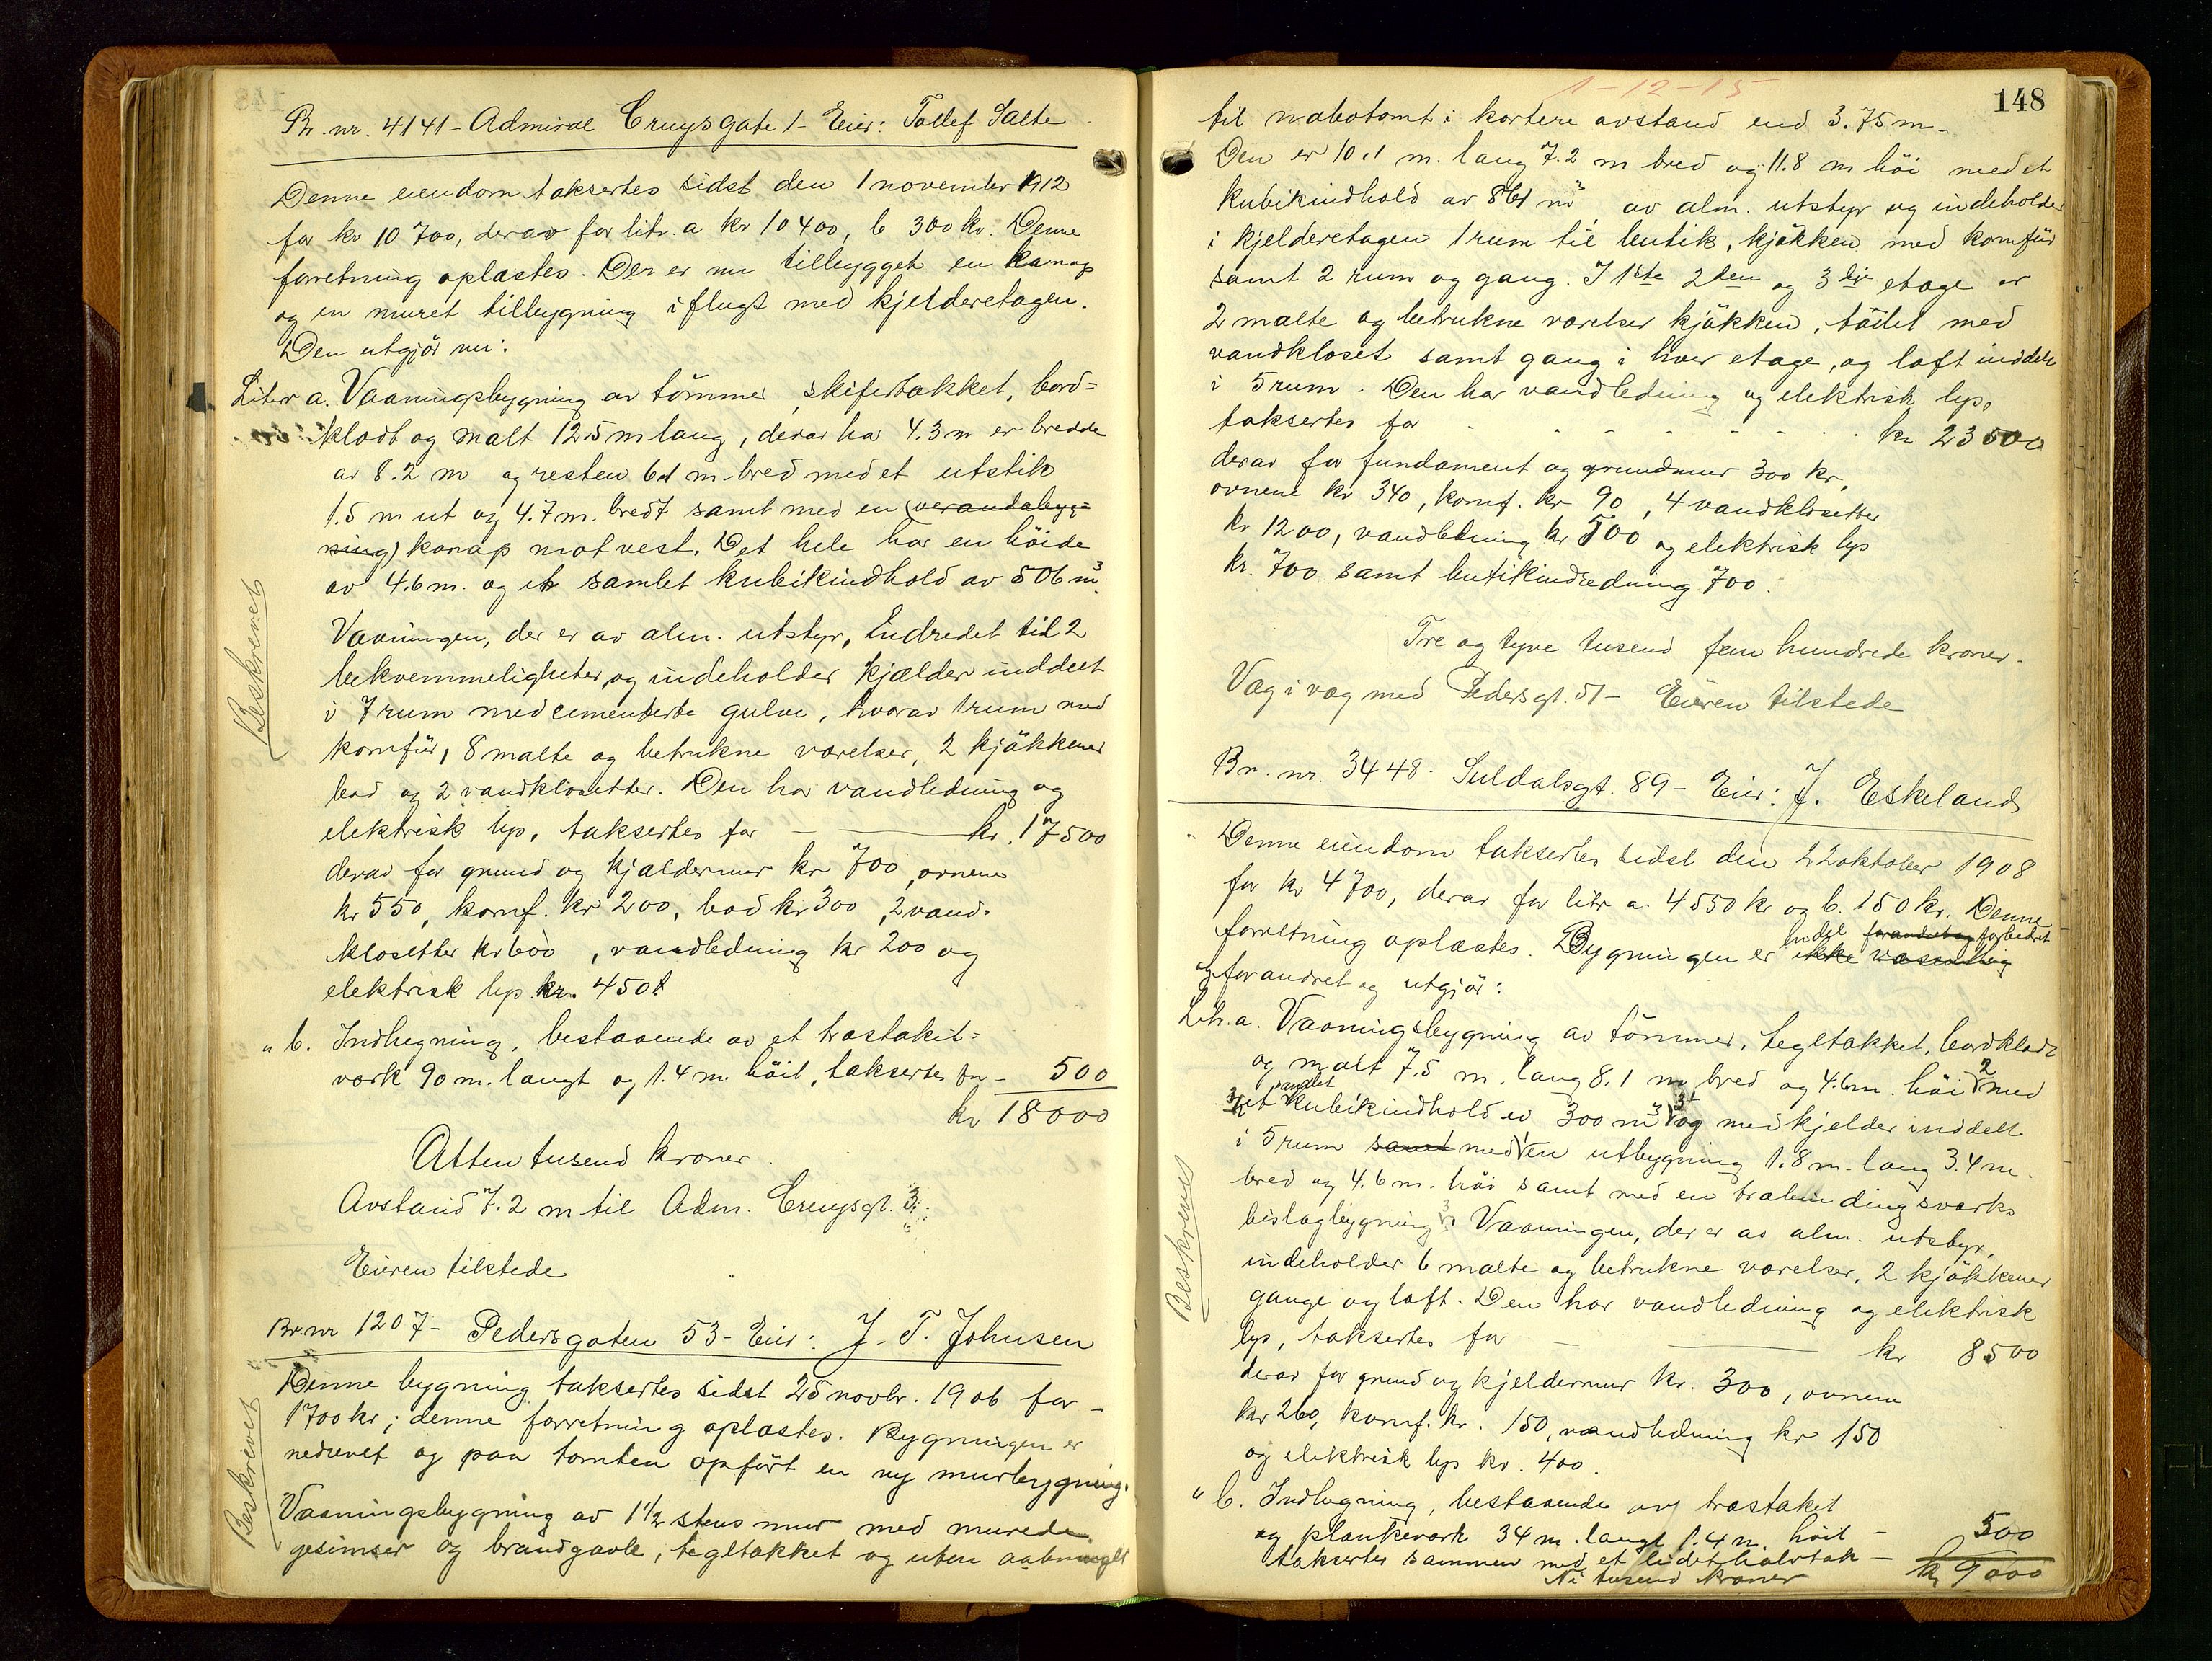 Br. nr. 4141 - Admiral Cruysgate 1 - Eier: Tollef Salte
Denne eiendom taksertes sidst den 1 november 1912
for kr 10 700, derav for litr. a kr 10400, b 300 kr. Denne
forretning oplæstes. Der er nu tilbygget en karnap
og en muret tilbygning i flugt med kjelderetagen.
Den utgjör nu:
Litr a. Vaaningsbygning av tömmer, skifertakket, bord=
klædt og malt 12.5 m lang, derav ha 4.3 m er bredde
av 8.2 m og resten 6.1 m. bred med et utstik
1.5 m ut og 4.7 m. bredt samt med en (verandabyg=
ning) karnap mot vest. Det hele har en höide
av 4.6 m. og et samlet kubikindhold av 506 m³.
Beskrevet
Vaaningen, der er av alm. utstyr, Indredet til 2
bekvemmeligheter, og indeholder kjælder inddelt
i 7 rum med cementerte gulve, hvorav 1 rum med
komfür, 8 malte og betrukne værelser, 2 kjökkener
bad og 2 vandklosetter. Den har vandledning og
elektrisk lys, taksertes for — kr. 17500
derav for grund og kjældermur kr 700, ovnene
kr 550, komf. kr 200, bad kr 300, 2 vand-
klosetter kr 600, vandledning kr 200 og
elektrisk lys kr. 450.
" b. Indhegning, bestaaende av et træstaket=
værk 90 m. langt og 1.4 m. höit, taksertes for - 500
kr 18000
Atten tusend kroner
Avstand 7.2 m til Adm. Cruysgt. 3.
Eieren tilstede
Br. nr 1207 - Pedersgaten 53 - Eier: J. T. Johnsen
Beskrevet
Denne bygning taksertes sidst 25 novbr. 1906 for -
1700 kr; denne forretning oplæstes. Bygningen er
nedrevet og paa tomten opfört en ny murbygning.
Vaaningsbygning av 1½ stens mur med murede
gesimser og brandgavle, tegltakket og uten aabninger
1-12-15
148
til nabotomt i kortere avstand end 3.75 m -
Den er 10.1 m. lang 7.2 m bred og 11.8 m höi med et
kubikindhold av 861 m³, av alm. utstyr og indeholder
i kjelderetagen 1 rum til butik, kjökken med komfür
samt 2 rum og gang. I 1ste 2den og 3dje etage er
2 malte og betrukne værelser kjökken, toilet med
vandkloset samt gang i hver etage, og loft inddelt
i 5 rum. Den har vandledning og elektrisk lys,
taksertes for - - - - - - kr 23500
derav for fundament og grundmur 300 kr,
ovnene kr 340, komf. kr 90, 4 vandklosetter
kr 1200, vandledning kr 500 og elektrisk lys
kr. 700 samt butikindredning 700.
Tre og tyve tusend fem hundrede kroner.
Væg i væg med Pedersgt. 51 - Eieren tilstede
Br. nr. 3448. Suldalsgt. 89 - Eier: J. Eskeland
" Denne eiendom taksertes sidst den 22 oktober 1908
for kr 4700, derav for litr a. 4550 kr og b. 150 kr. Denne
forretning oplæstes. Bygningen er ikke væsentlig
forandret og forbedret
og forandret og utgjör:
Litr. a. Vaaningsbygning av tömmer, tegltakket, bordklædt
og malt 7.5 m. lang 8.1 m bred og 4.6 m. höi med
et samlet kubikindhold av 300 m³ og med kjelder inddelt
i 5 rum samt med en utbygning 1.8 m. lang 3.4 m.
bred og 4.6 m. höi samt med en træbindingsverks
bislagbygning. Vaaningen, der er av alm. utstyr,
Beskrevet
indeholder 6 malte og betrukne værelser, 2 kjökkener
gange og loft. Den har vandledning og elektrisk
lys, taksertes for — kr. 8500
derav for grund og kjeldermur kr. 300, ovnene
kr 260, komf. kr. 150, vandledning kr 150
og elektrisk lys kr. 400.
" b. Indhegning, bestaaende av træstaket
og plankeværk 34 m. langt 1.4 m. höit —
taksertes sammen med et lidet halvtak — 500
Ni tusend kroner kr 9000